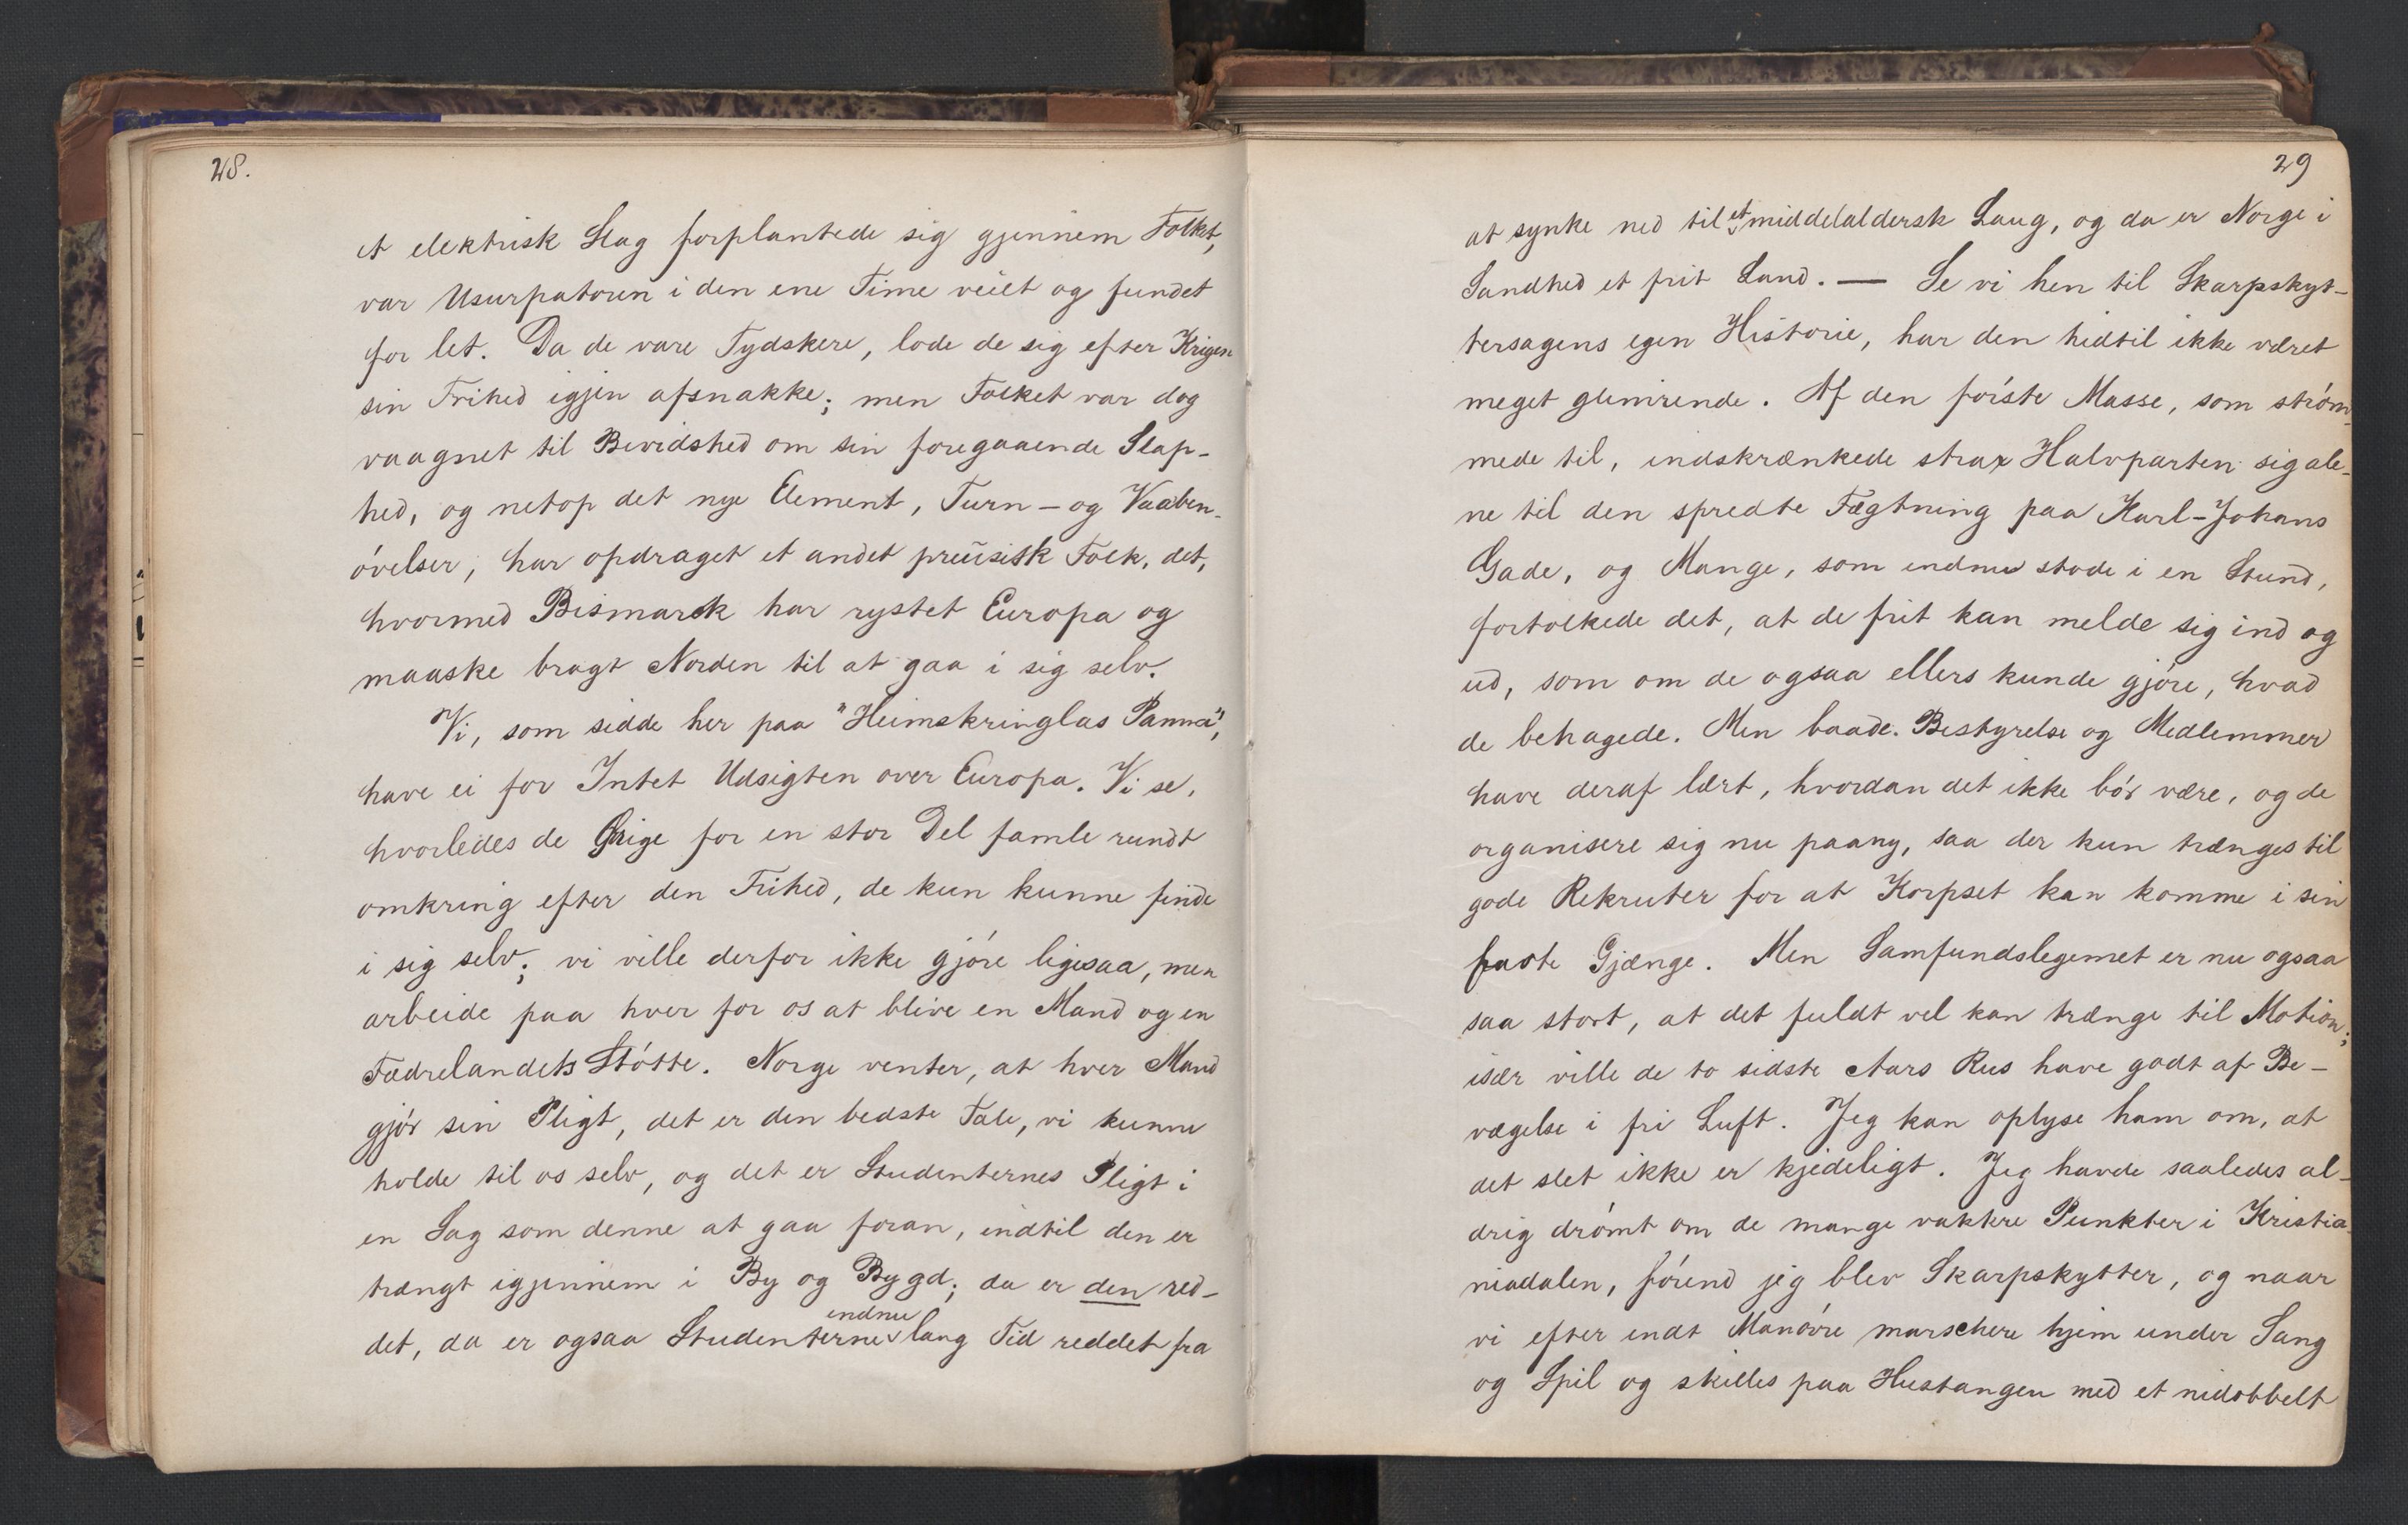 28.
et elektrisk Slag forplantede sig gjennem Folket,
var Usurpatoren i den ene Time veiet og fundet
for let. Da de vare Tydskere, lode de sig efter Krigen
sin Frihed igjen afsnakke; men Folket var dog
vaagnet til Bevidshed om sin foregaaende Slap-
hed, og netop det nye Element, Turn- og Vaaben-
óvelser, har opdraget et andet preüsisk Folk, det,
hvormed Bismarck har rystet Europa og
maaske bragt Norden til at gaa i sig selv.
Vi, som sidde her paa "Heimskringlas Panna",
have ei for Intet Udsigten over Europa. Vi se,
hvorledes de Øvrige for en stor Del famle rundt
omkring efter den Frihed, de kun kunne finde
i sig selv; vi ville derfor ikke gjóre ligesaa, men
arbeide paa hver for os at blive en Mand og en
Fædrelandets Stótte. Norge venter, at hver Mand
gjór sin Pligt, det er den bedste Tale, vi kunne
holde til os selv, og det er Studenternes Pligt i
en Sag som denne at gaa foran, indtil den er
trængt igjennem i By og Bygd; da er den red-
det, da er ogsaa Studenterne indnu lang Tid reddet fra
29
at synke ned til et middelaldersk Laug, og da er Norge i
Sandhed et frit Land. — Se vi hen til Skarpskyt-
tersagens egen Historie, har den hidtil ikke været
meget glimrende. Af den fórste Masse, som stróm-
mede til, indskrænkede strax Halvparten sig ale-
ne til den spredte Fægtning paa Karl-Johans
Gade, og Mange, som endnu stode i en Stund,
fortolkede det, at de frit kan melde sig ind og
ud, som om de ogsaa ellers kunde gjóre, hvad
de behagede. Men baade Bestyrelse og Medlemmer
have deraf lært, hvordan det ikke bór være, og de
organisere sig nu paany, saa der kun trænges til
gode Rekruter for at Korpset kan komme i sin
faste Gjænge. Men Samfundslegemet er nu ogsaa
saa stort, at det fuldt vel kan trænge til Motion;
især ville de to sidste Aars Rus have godt af Be-
vægelse i fri Luft. Jeg kan oplyse ham om, at
det slet ikke er kjedeligt. Jeg havde saaledes al-
drig drómt om de mange vakkre Punkter i Kristia-
niadalen, fórend jeg blev Skarpskytter, og naar
vi efter endt Manóvre marschere hjem under Sang
og Spil og skilles paa Hustangen med et nidobbelt